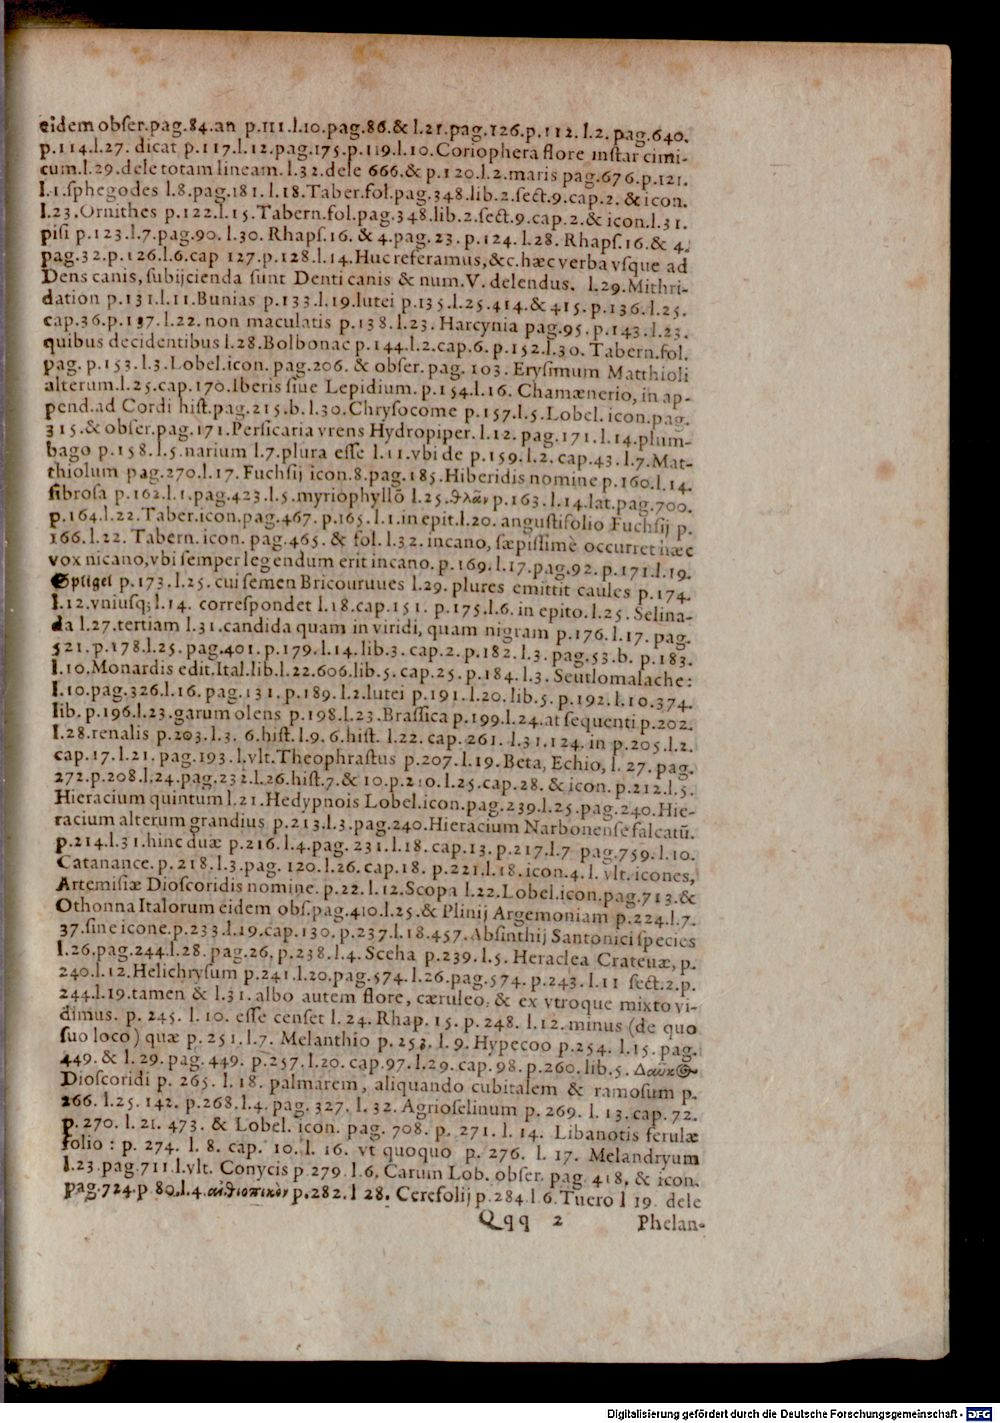 eidem obſer.pag.84.an p.111.l.10.pag.86.& l.21.pag.126.p.112.l.2.pag.640.
p.114.l.27. dicat p.117.l.12.pag.175.p.119.l.10.Coriophera flore inſtar cimi-
cum.l.29.dele totam lineam. l.32.dele 666.& p.120.l.2.maris pag.676.p.121.
l.1.ſphegodes l.8.pag.181.l.18.Taber.fol.pag.348.lib.2.ſect.9.cap.2. & icon.
l.23.Ornithes p.122.l.15.Tabern.fol.pag.348.lib.2.ſect.9.cap.2.& icon.l.31.
piſi p.123.l.7.pag.90. l.30. Rhapſ.16. & 4.pag. 23. p.124. l.28. Rhapſ.16.& 4.
pag.32.p.126.l.6.cap 127.p.128.l.14.Huc referamus,&c.hæc verba vſque ad
Dens canis, ſubijcienda ſunt Denti canis & num.V. delendus. l.29.Mithri-
dation p.131.l.11.Bunias p.133.l.19.lutei p.135.l.25.414.& 415.p.136.l.25.
cap.36.p.137.l.22. non maculatis p.138.l.23. Harcynia pag.95.p.143.l.23.
quibus decidentibus l.28.Bolbonac p.144.l.2.cap.6.p.152.l.30. Tabern.fol.
pag. p.153.l.3.Lobel.icon. pag.206. & obſer. pag. 103. Eryſimum Matthioli
alterum.l.25.cap.170.Iberis ſiue Lepidium. p.154.l.16. Chamænerio, in ap-
pend.ad Cordi hiſt.pag.215.b.l.30.Chryſocome p.157.l.5.Lobel. icon.pag.
315.& obſer.pag.171.Perſicaria vrens Hydropiper.l.12.pag.171.l.14.plum-
bago p.158.l.5.narium l.7.plura eſſe l.11.vbi de p.159.l.2.cap.43.l.7.Mat-
thiolum pag.270.l.17. Fuchſij icon.8.pag.185.Hiberidis nomine p.160.l.14.
fibroſa p.162.l.1.pag.423.l.5.myriophyllō l.25.θλᾶν p.163.l.14.lat.pag.700.
p.164.l.22.Taber.icon.pag.467. p.165.l.1.in epit.l.20. anguſtifolio Fuchſij p.
166.l.22. Tabern. icon. pag.465. & fol. l.32. incano, ſæpiſſimè occurret hæc
vox nicano, vbi ſemper legendum erit incano. p.169.l.17.pag.92. p.171.l.19.
Spligel p.173.l.25. cui ſemen Bricouruues l.29. plures emittit caules p.174.
l.12.vniuſq; l.14. correſpondet l.18.cap.151. p.175.l.6. in epito.l.25. Selina-
da l.27.tertiam l.31.candida quam in viridi, quam nigram p.176.l.17. pag.
521. p.178.l.25. pag.401. p.179.l.14.lib.3. cap.2. p.182.l.3. pag.53.b. p.183.
l.10.Monardis edit.Ital.lib.l.22.606.lib.5. cap.25. p.184.l.3. Seutlomalache:
l.10.pag.326.l.16.pag.131.p.189.l.2.lutei p.191.l.20.lib.5. p.192.l.10.374.
lib. p.196.l.23.garum olens p.198.l.23.Braſſica p.199.l.24.at ſequenti p.202.
l.28.renalis p.203.l.3. 6.hiſt.l.9.6.hiſt. l.22. cap.261. l.31.124. in p.205.l.2.
cap.17.l.21. pag.193.l.vlt.Theophraſtus p.207.l.19.Beta, Echio, l. 27. pag.
272.p.208.l.24.pag.232.l.26.hiſt.7.& 10.p.210.l.25.cap.28. & icon.p.212.l.5.
Hieracium quintum l.21.Hedypnois Lobel.icon.pag.239.l.25.pag.240.Hie-
racium alterum grandius p.213.l.3.pag.240.Hieracium Narbonenſe falcatū.
p.214.l.31.hinc duæ p.216.l.4.pag.231.l.18.cap.13. p.217.l.7 pag.759.l.10.
Catanance. p.218.l.3.pag. 120.l.26.cap.18. p.221.l.18.icon.4.l.vlt.icones,
Artemiſiæ Dioſcoridis nomine. p.22.l.12.Scopa l.22.Lobel.icon.pag.713.&
Othonna Italorum eidem obſ.pag.410.l.25.& Plinij Argemoniam p.224.l.7.
37.ſine icone.p.233.l.19.cap.130. p.237.l.18.457.Abſinthij Santonici ſpecies
l.26.pag.244.l.28. pag.26. p.238.l.4. Sceha p.239.l.5. Heraclea Crateuæ, p.
240.l.12.Helichryſum p.241.l.20.pag.574.l.26.pag.574. p.243.l.11 ſect.2.p.
244.l.19.tamen & l.31.albo autem flore, cæruleo, & ex vtroque mixto vi-
dimus. p. 245. l. 10. eſſe cenſet l. 24. Rhap. 15. p. 248. l. 12. minus (de quo
ſuo loco) quæ p.251.l.7. Melanthio p. 253. l. 9. Hypecoo p.254. l.15. pag.
449. & l. 29. pag. 449. p.257.l.20. cap.97.l.29.cap.98. p.260.lib.5.
Dioſcoridi p. 265. l. 18. palmarem, aliquando cubitalem & ramoſum p.
266. l.25. 142. p.268.l.4. pag. 327. l. 32. Agrioſelinum p. 269. l. 13. cap. 72.
p. 270. l. 21. 473. & Lobel. icon. pag. 708. p. 271. l. 14. Libanotis ferulæ
folio : p. 274. l. 8. cap. 10. l. 16. vt quoquo p. 276. l. 17. Melandryum
l.23.pag.711.l.vlt. Conycis p 279.l.6. Carum Lob. obſer. pag. 418. & icon.
pag.724.p 80.l.4.αἰθιοπικὸν p.282. l 28. Cerefolij p.284 l.6.Tuero l 19. dele
Qqq 2 Phelan-
Digitalisierung gefördert durch die Deutsche Forschungsgemeinschaft - DFG